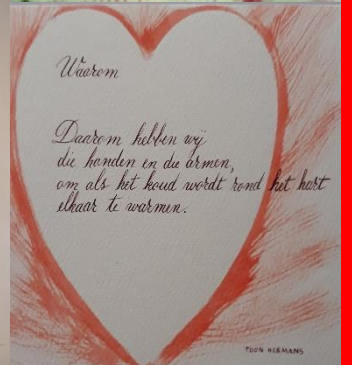 Waarom
Daarom hebben wij
die handen en die armen,
om als het koud wordt rond het hart
elkaar te warmen.
TOON HERMANS